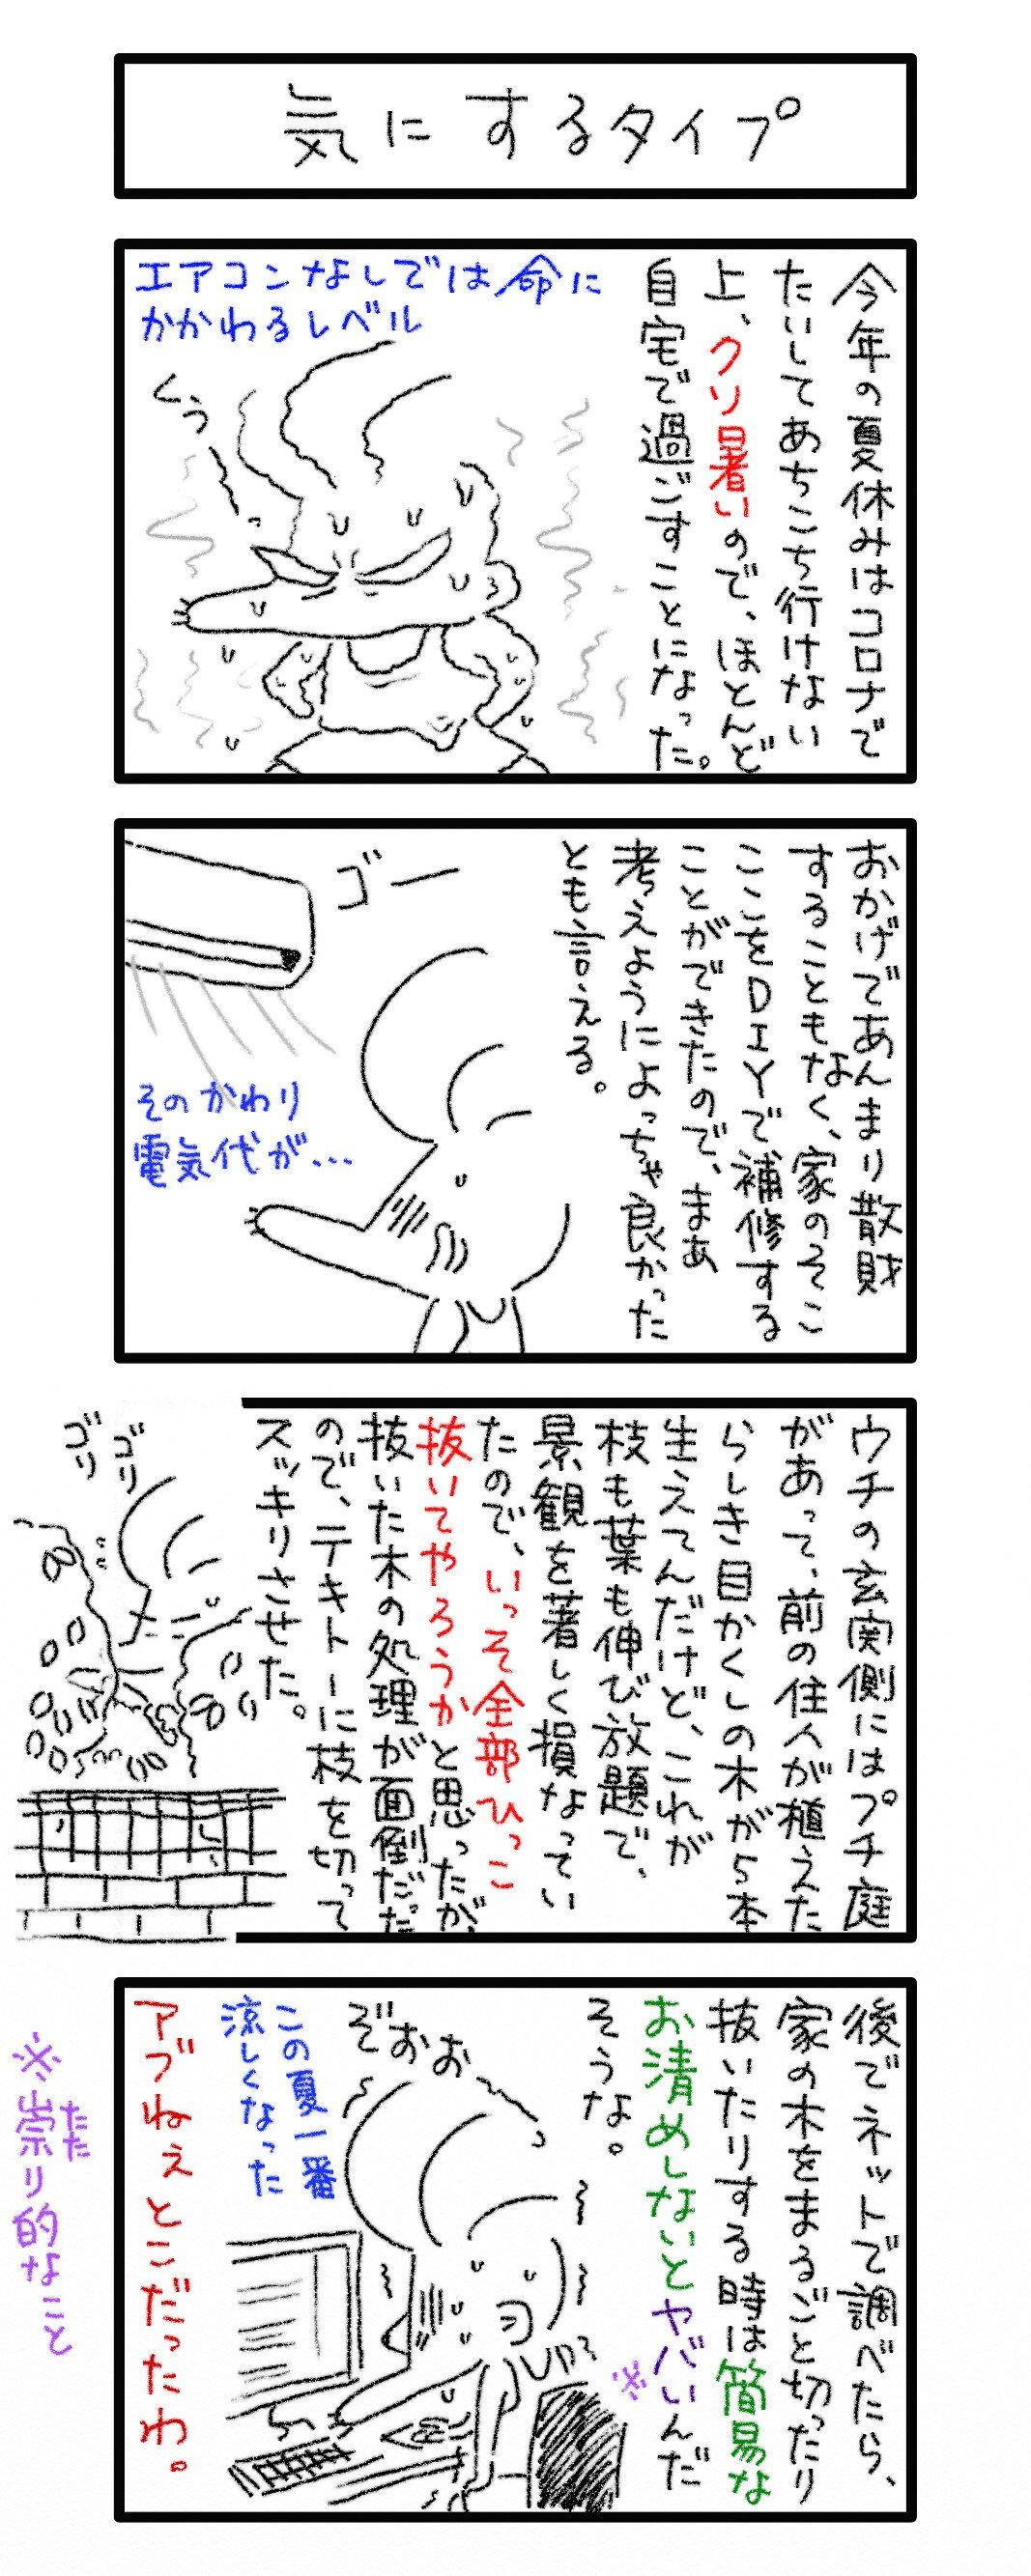 気にするタイプ
今年の夏休みはコロナで
たいしてあちこち行けない
上、クソ暑いので、ほとんど
自宅で過ごすことになった。
エアコンなしでは命に
かかわるレベル
くっ
おかげであんまり散財
することもなく、家のそこ
ここをDIYで補修する
ことができたので、まあ
考えようによっちゃ良かった
とも言える。
ゴー
そのかわり
電気代が…
ウチの玄関側にはプチ庭
があって、前の住人が植えた
らしき目かくしの木が5本
生えてんだけど、これが
枝も葉も伸び放題で、
景観を著しく損なってい
たので、いっそ全部ひっこ
抜いてやろうかと思ったが、
抜いた木の処理が面倒だ
ので、テキトーに枝を切って
スッキリさせた。
ゴリ
ゴリ
後でネットで調べたら、
家の木をまるごと切ったり
抜いたりする時は簡易な
お清めしないとヤバいんだ
※
そうな。
ぞぉぉ
この夏一番
涼しくなった
アブねぇとこだったわ。
たた
※祟り的なこと